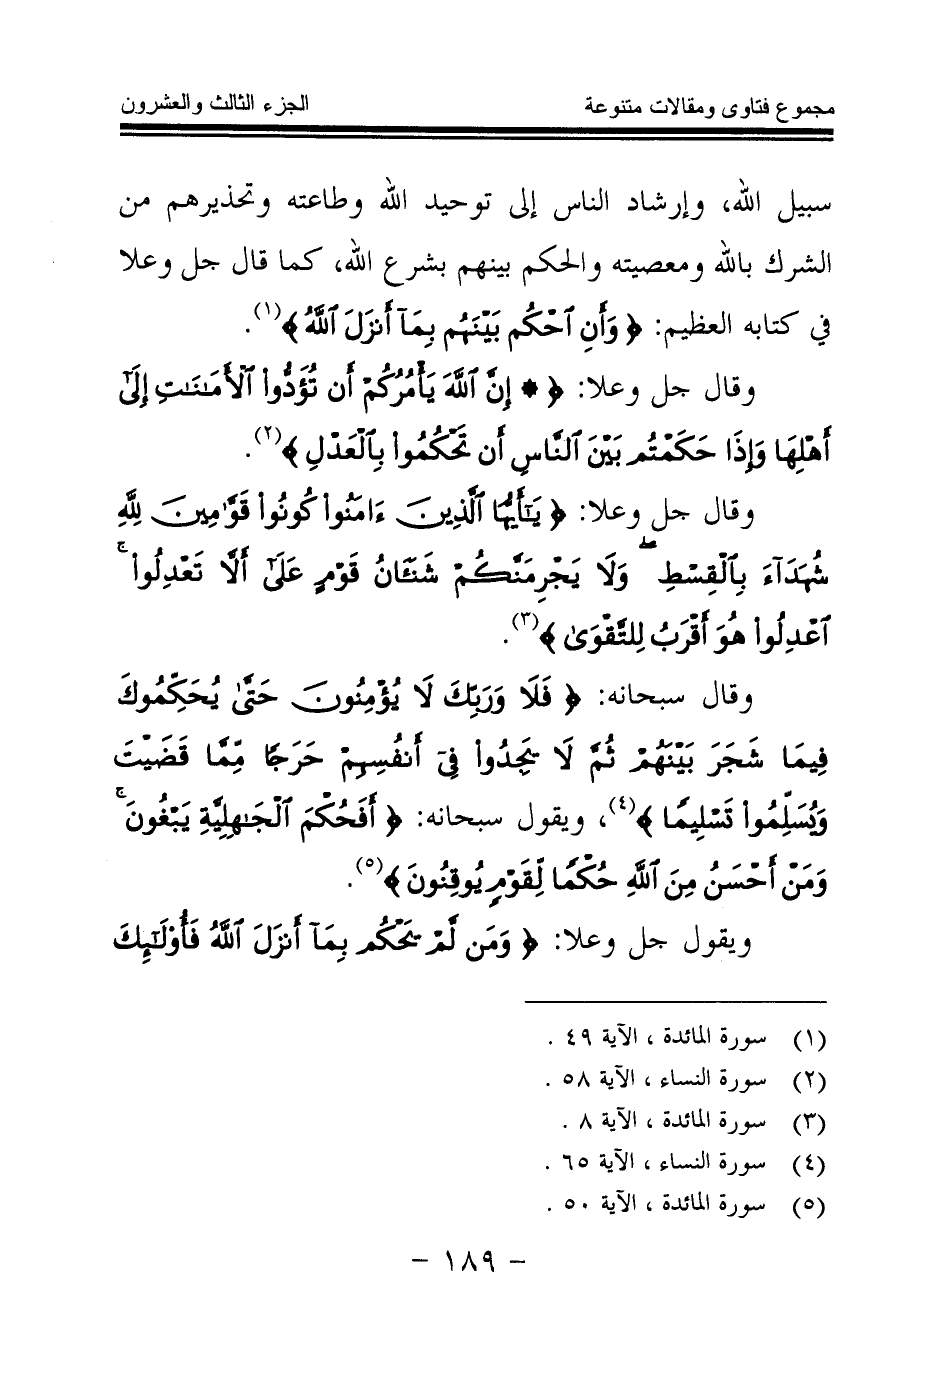 مجموع فتاوى ومقالات متنوعة الجزء الثالث والعشرون
سبيل الله، وإرشاد الناس إلى توحيد الله وطاعته وتحذيرهم من
الشرك بالله ومعصيته والحكم بينهم بشرع الله، كما قال جل وعلا
في كتابه العظيم: ﴿ وَأَنِ ٱحْكُم بَيْنَهُم بِمَآ أَنزَلَ ٱللَّهُ ﴾(١).
وقال جل وعلا: ﴿ * إِنَّ ٱللَّهَ يَأْمُرُكُمْ أَن تُؤَدُّوا۟ ٱلْأَمَـٰنَـٰتِ إِلَىٰٓ
أَهْلِهَا وَإِذَا حَكَمْتُم بَيْنَ ٱلنَّاسِ أَن تَحْكُمُوا۟ بِٱلْعَدْلِ ﴾(٢).
وقال جل وعلا: ﴿ يَـٰٓأَيُّهَا ٱلَّذِينَ ءَامَنُوا۟ كُونُوا۟ قَوَّٰمِينَ لِلَّهِ
شُهَدَآءَ بِٱلْقِسْطِ ۖ وَلَا يَجْرِمَنَّكُمْ شَنَـَٔانُ قَوْمٍ عَلَىٰٓ أَلَّا تَعْدِلُوا۟ ۚ
ٱعْدِلُوا۟ هُوَ أَقْرَبُ لِلتَّقْوَىٰ ﴾(٣).
وقال سبحانه: ﴿ فَلَا وَرَبِّكَ لَا يُؤْمِنُونَ حَتَّىٰ يُحَكِّمُوكَ
فِيمَا شَجَرَ بَيْنَهُمْ ثُمَّ لَا يَجِدُوا۟ فِىٓ أَنفُسِهِمْ حَرَجًا مِّمَّا قَضَيْتَ
وَيُسَلِّمُوا۟ تَسْلِيمًا ﴾(٤)، ويقول سبحانه: ﴿ أَفَحُكْمَ ٱلْجَـٰهِلِيَّةِ يَبْغُونَ ۚ
وَمَنْ أَحْسَنُ مِنَ ٱللَّهِ حُكْمًا لِّقَوْمٍ يُوقِنُونَ ﴾(٥).
ويقول جل وعلا: ﴿ وَمَن لَّمْ يَحْكُم بِمَآ أَنزَلَ ٱللَّهُ فَأُو۟لَـٰٓئِكَ
(١) سورة المائدة ، الآية ٤٩ .
(٢) سورة النساء ، الآية ٥٨ .
(٣) سورة المائدة ، الآية ٨ .
(٤) سورة النساء ، الآية ٦٥ .
(٥) سورة المائدة ، الآية ٥٠ .
- ١٨٩ -